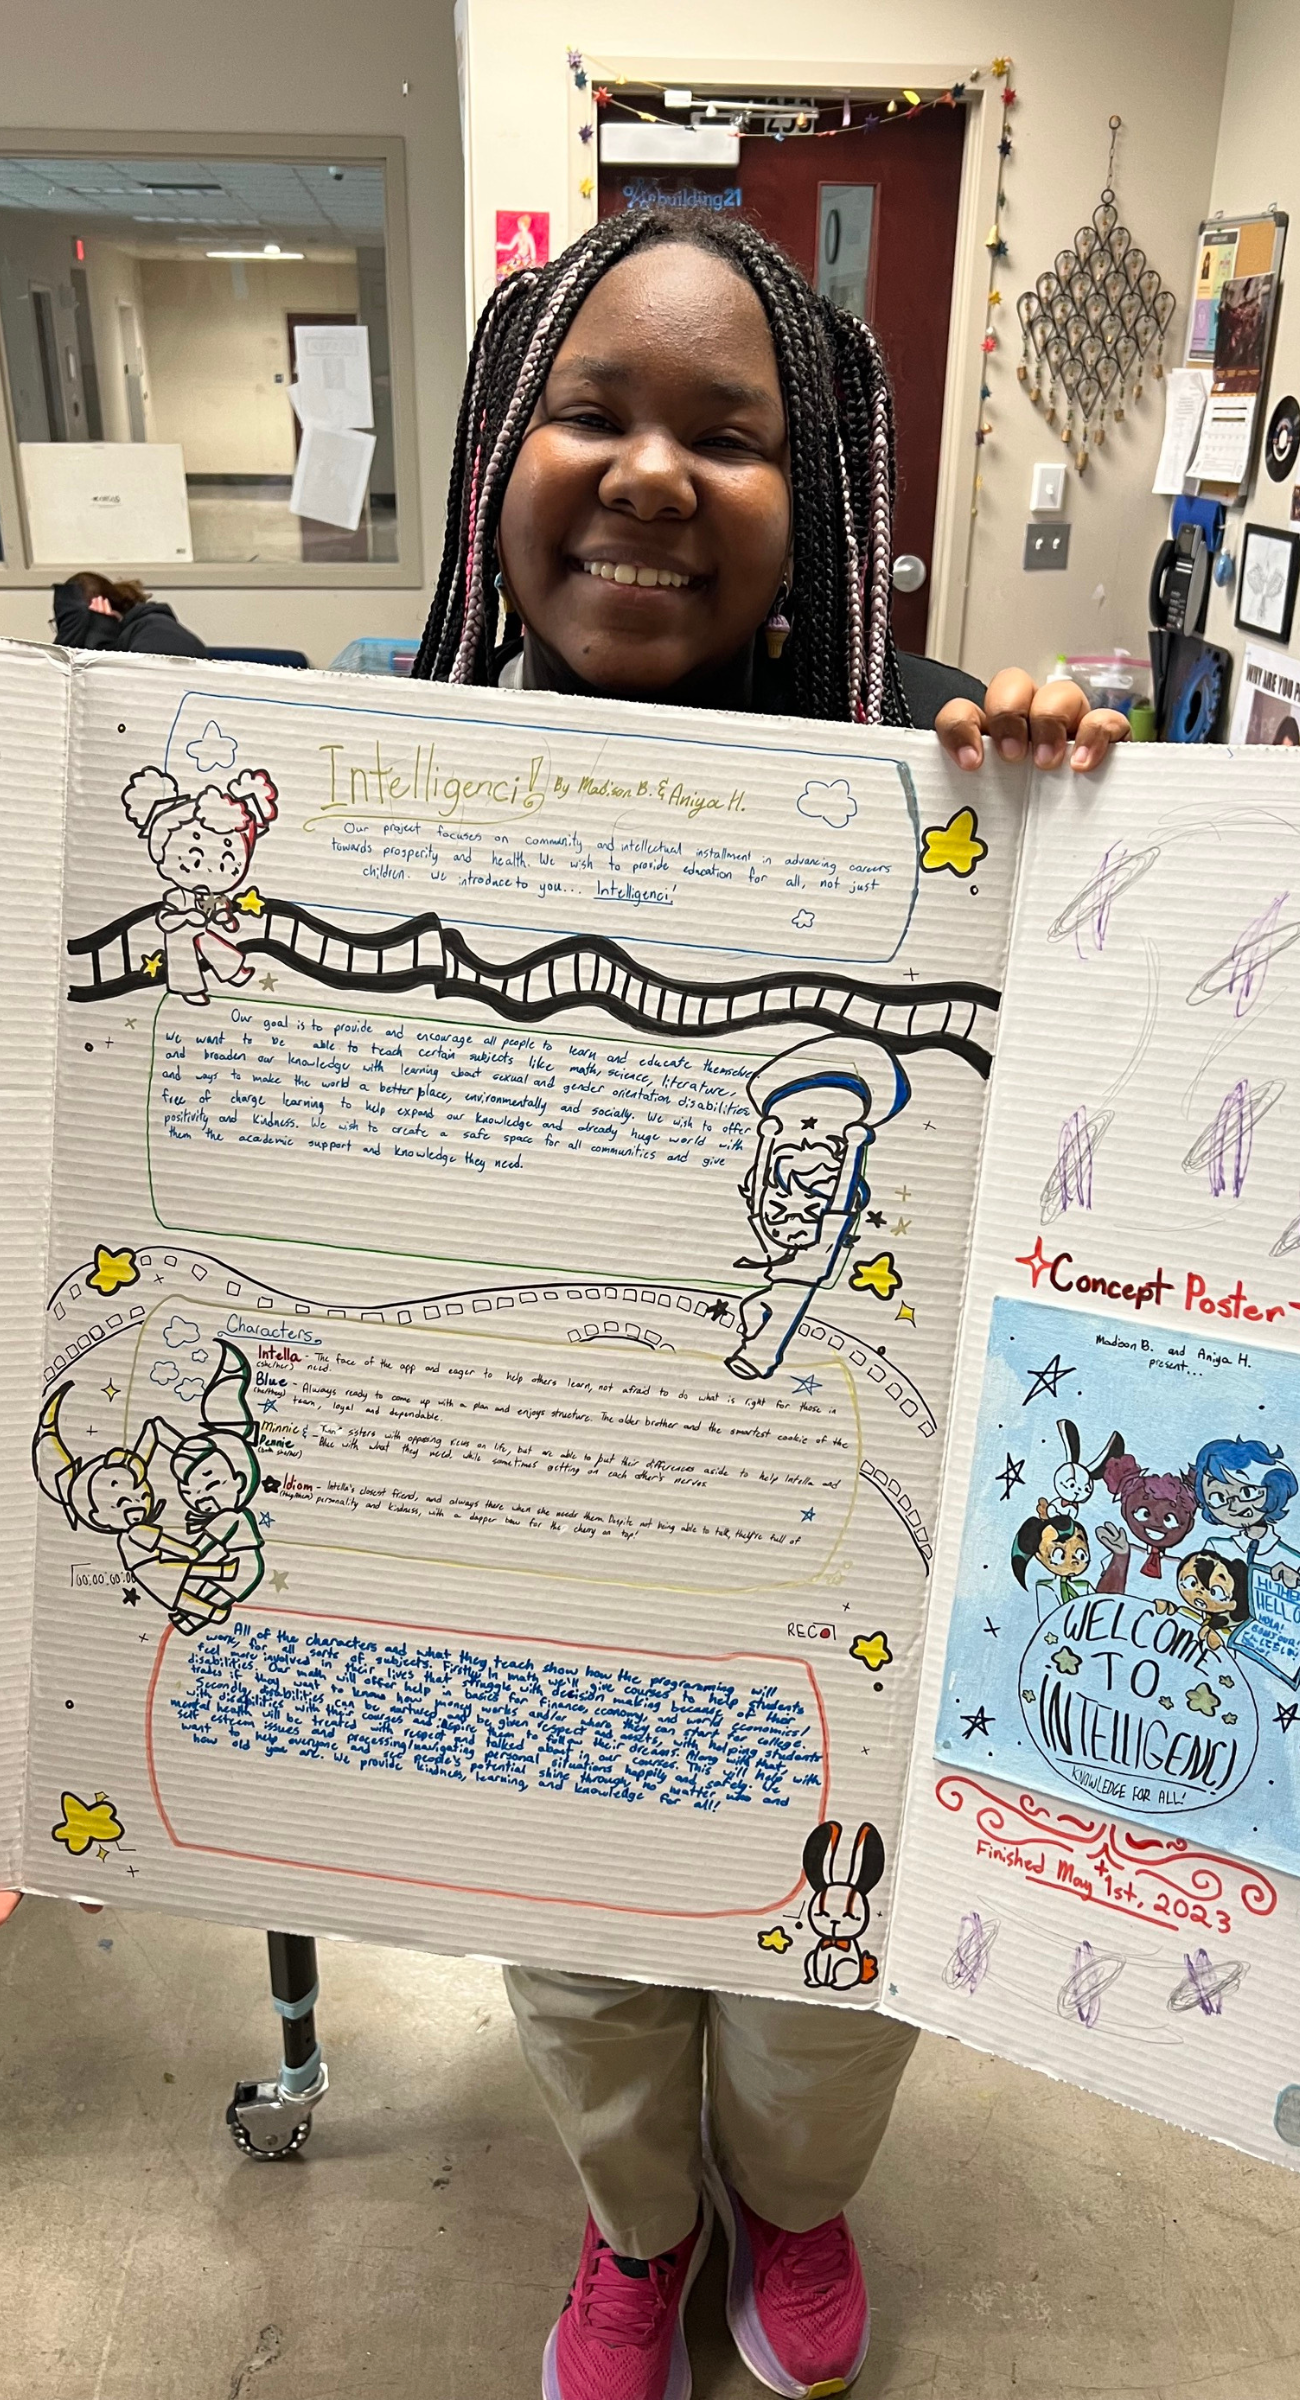 building21
WHY ARE YOU
Intelligenci! By Madison B. & Aniya H.
Our project focuses on community and intellectual installment in advancing careers
towards prosperity and health. We wish to provide education for all, not just
children. We introduce to you... Intelligenci!
Our goal is to provide and encourage all people to learn and educate themselves.
We want to be able to teach certain subjects like math, science, literature,
and broaden our knowledge with learning about sexual and gender orientation, disabilities
and ways to make the world a better place, environmentally and socially. We wish to offer
free of charge learning to help expand our knowledge and already huge world with
positivity and kindness. We wish to create a safe space for all communities and give
them the academic support and knowledge they need.
Characters
Intella - The face of the app and eager to help others learn, not afraid to do what is right for those in
(she/her) need.
Blue - Always ready to come up with a plan and enjoys structure. The older brother and the smartest cookie of the
team, loyal and dependable.
Minnie & - "Twin" sisters with opposing views on life, but are able to put their differences aside to help Intella and
Pennie Blue with what they need, while sometimes getting on each other's nerves.
(both she/her)
Idiom - Intella's closest friend, and always there when she needs them. Despite not being able to talk, they're full of
(they/them) personality and kindness, with a dapper bow for the cherry on top!
00:00:00:00
REC
All of the characters and what they teach show how the programming will
work, for all sorts of subjects. Firstly, in math we'll give courses to help students
feel more involved in their lives that struggle with decision making because of their
disabilities. Our math will offer help in basics for finance, economy, and world economics/
trades if they want to know how money works and/or where they can start for college.
Secondly, disabilities can be nurtured and be given respect and assets, with helping students
with disabilities with their courses and inspire them to follow their dreams. Along with that,
mental health will be treated with respect and talked about in our courses. This will help with
self esteem issues and processing/navigating personal situations happily and safely. We
want to help everyone and use people's potential shine through, no matter who and
how old you are. We provide kindness, learning, and knowledge for all!
Concept Poster
Madison B. and Aniya H.
present...
HI THERE
HELLO
HOLA!
BONJOUR!
WELCOME
TO
INTELLIGENCI
KNOWLEDGE FOR ALL!
Finished May 1st, 2023